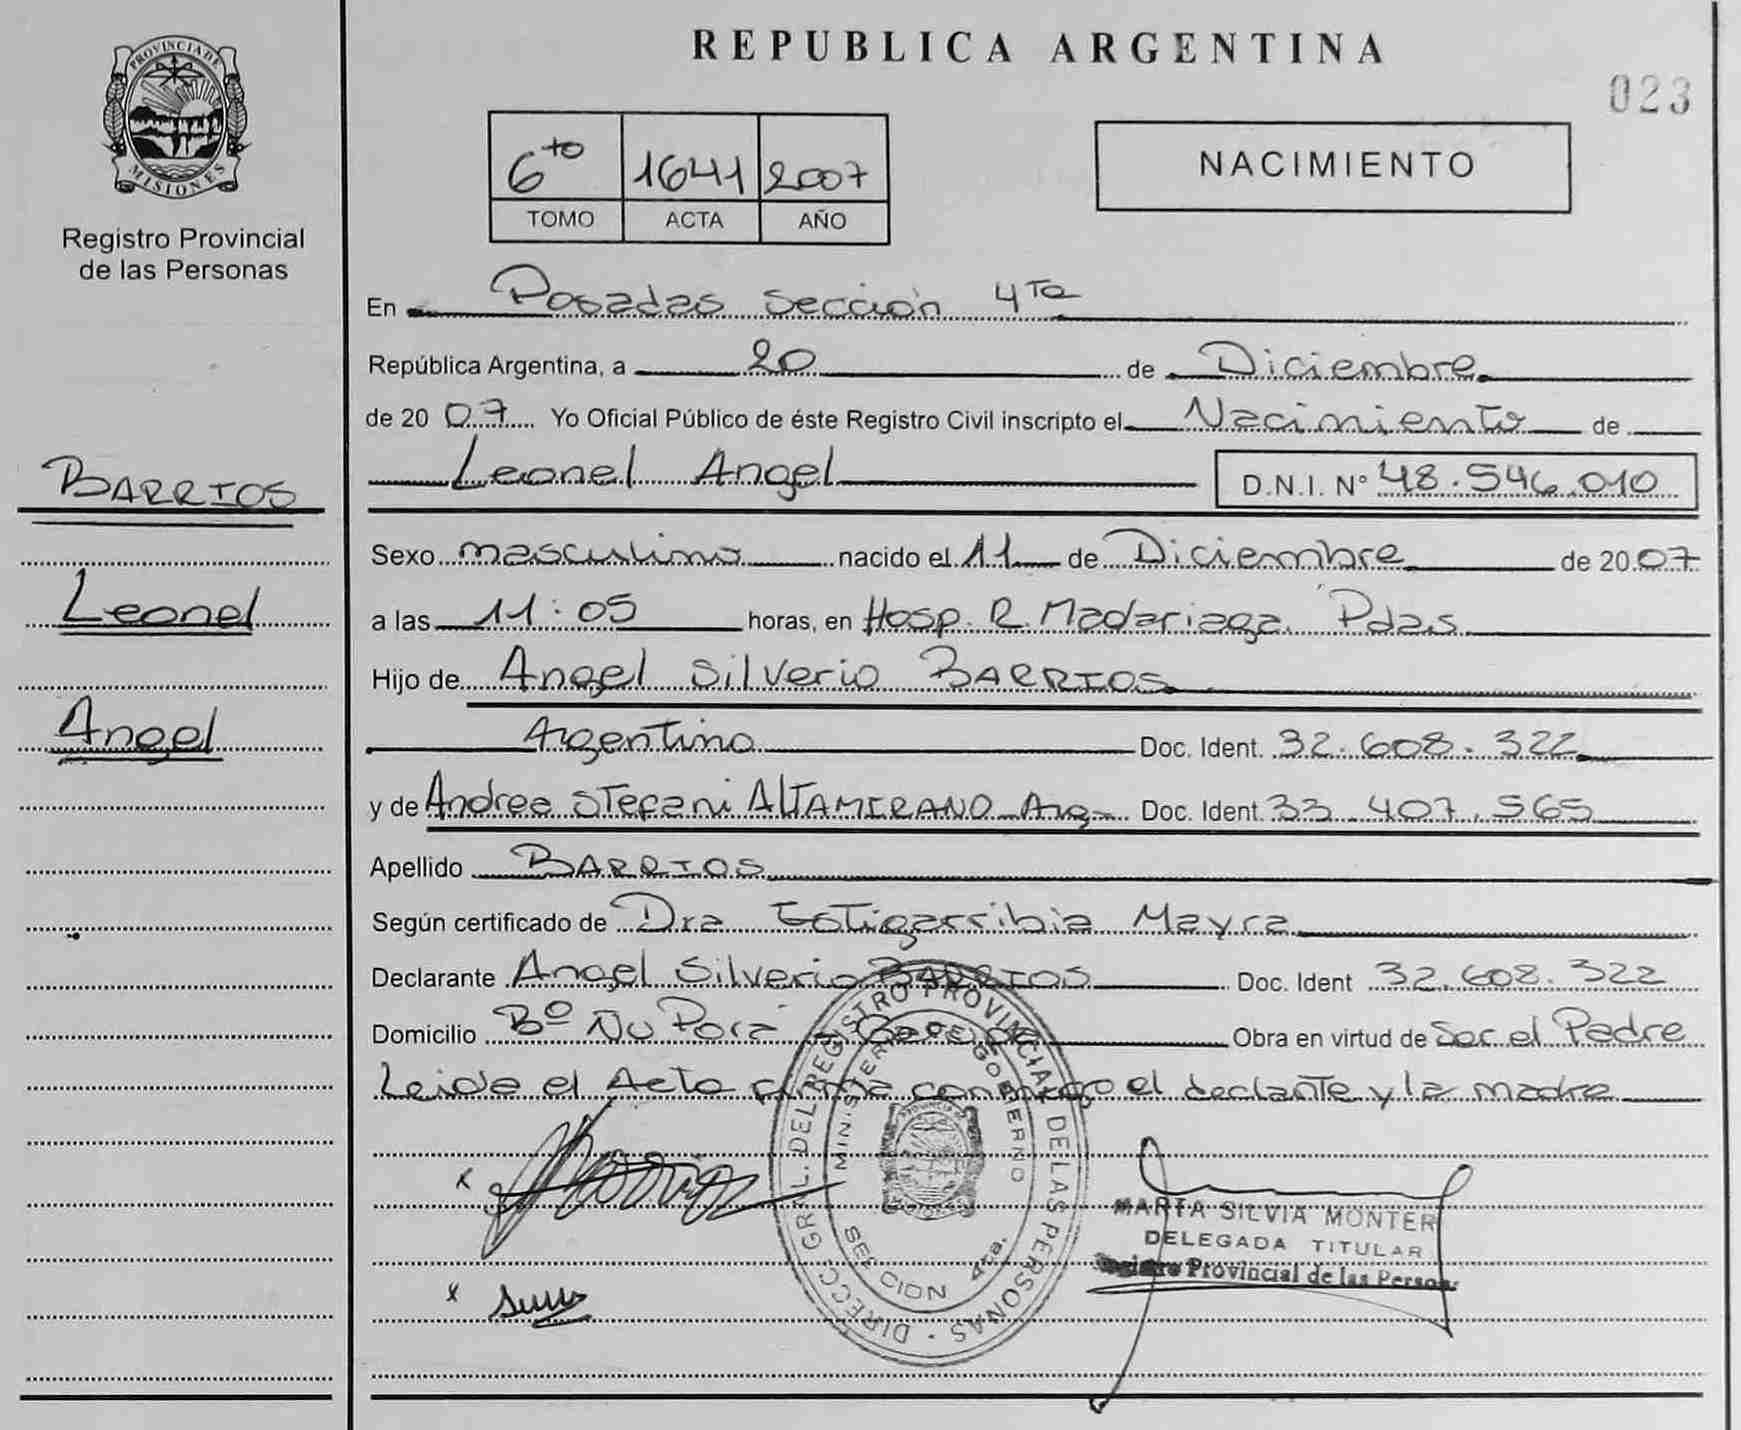 PROVINCIA DE
MISIONES
Registro Provincial
de las Personas
BARRIOS
Leonel
Angel
REPUBLICA ARGENTINA
023
6to 1641 2007
TOMO ACTA AÑO
NACIMIENTO
En Posadas sección 4Ta
República Argentina, a 20 de Diciembre
de 2007 Yo Oficial Público de éste Registro Civil inscripto el Nacimiento de
Leonel Angel D.N.I. Nº 48.546.010
Sexo masculino nacido el 11 de Diciembre de 2007
a las 11:05 horas, en Hosp. R. Madariaga. Pdas
Hijo de Angel Silverio BARRIOS
Argentino Doc. Ident. 32.608.322
y de Andrea Stefani ALTAMIRANO Arg Doc. Ident. 33.407.565
Apellido BARRIOS
Según certificado de Dra Estigarribia Mayra
Declarante Angel Silverio BARRIOS Doc. Ident 32.608.322
Domicilio Bº Ñu Pora Obra en virtud de Ser el Padre
Leida el Acta firma conmigo el declante y la madre
DIRECC. GRAL. DEL REGISTRO PROVINCIAL DE LAS PERSONAS
MINISTERIO DE GOBIERNO
SECCION 4ta.
MARTA SILVIA MONTER
DELEGADA TITULAR
Provincial de las Person